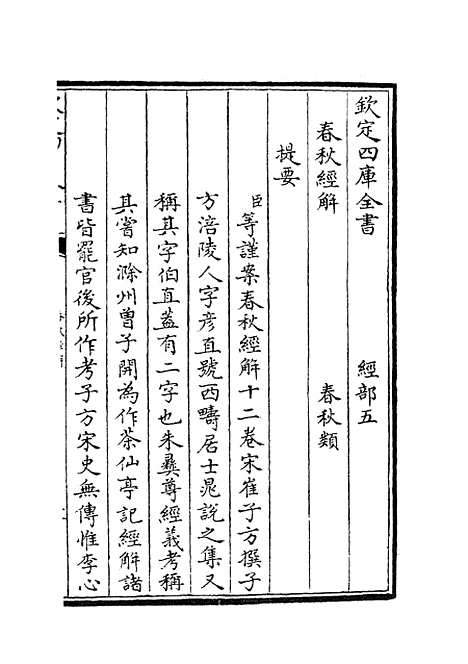 欽定四庫全書 經部五
春秋經解 春秋類
提要
臣等謹案春秋經解十二卷宋崔子方撰子
方涪陵人字彥直號西疇居士晁說之集又
稱其字伯直蓋有二字也朱彝尊經義考稱
其嘗知滁州曾子開為作茶仙亭記經解諸
書皆罷官後所作考子方宋史無傳惟李心